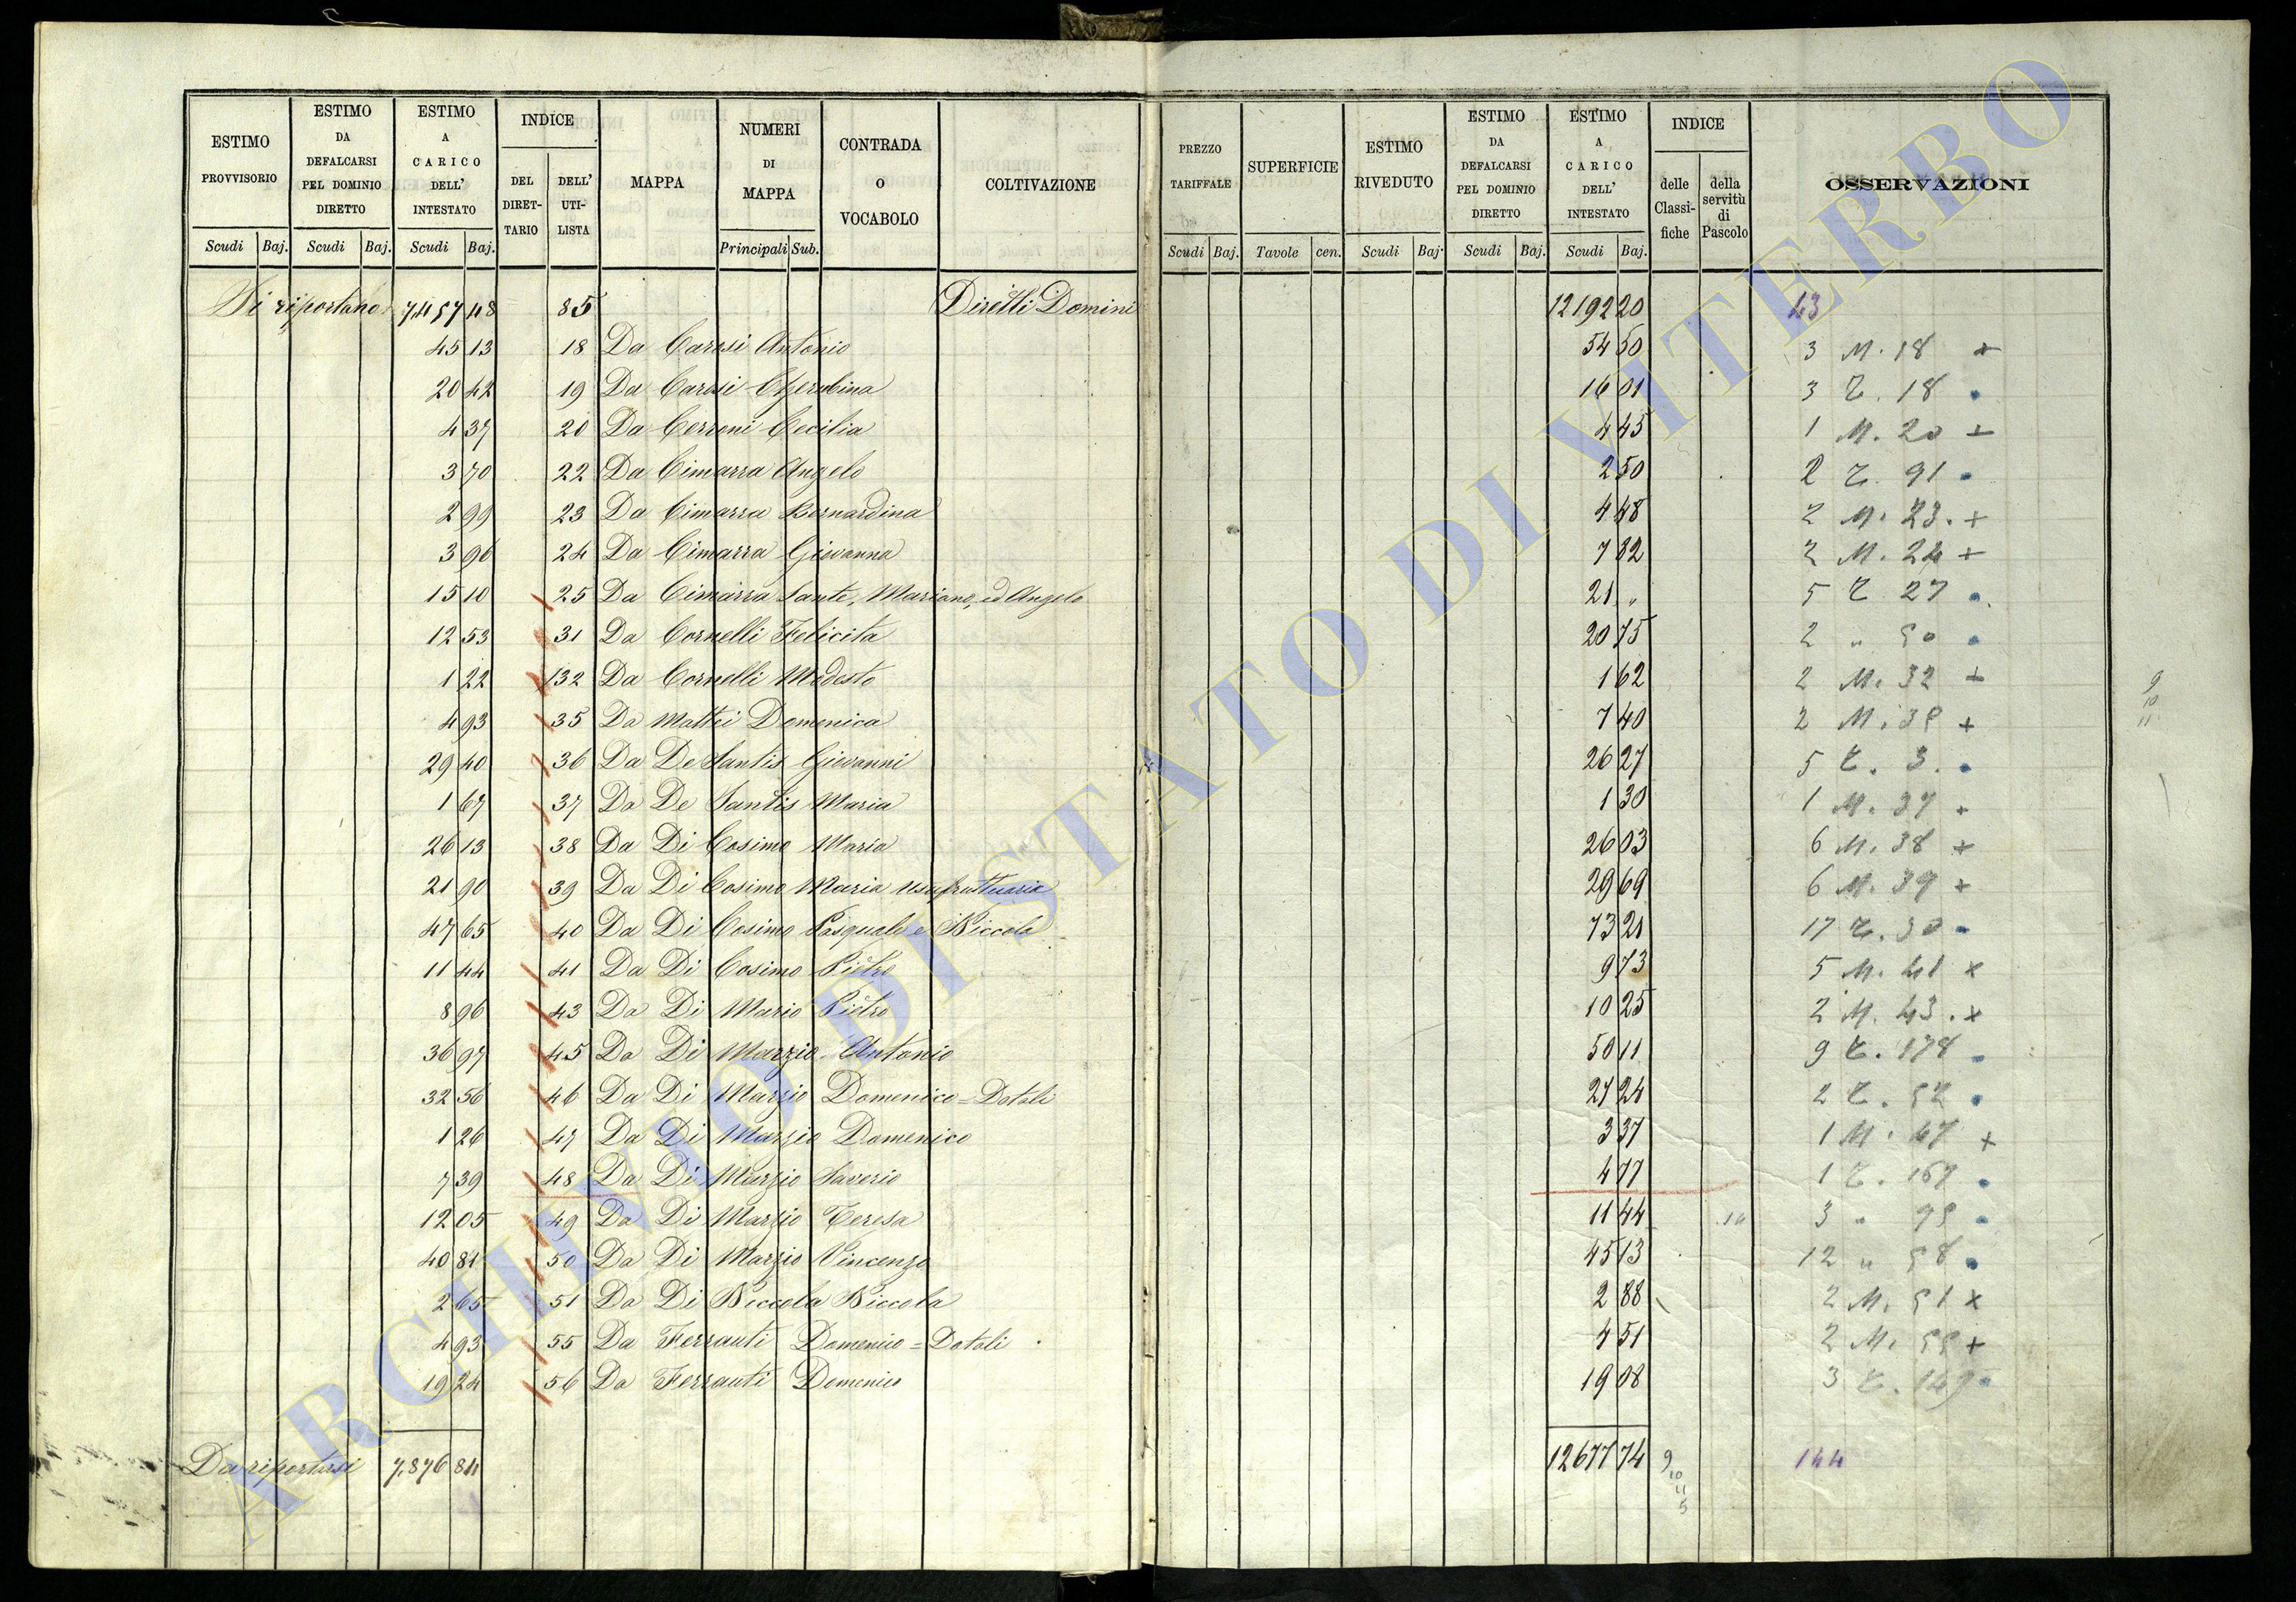 ESTIMO PROVVISORIO | ESTIMO DA DEFALCARSI PEL DOMINIO DIRETTO | ESTIMO A CARICO DELL' INTESTATO | INDICE | MAPPA | NUMERI DI MAPPA | CONTRADA O VOCABOLO | COLTIVAZIONE | PREZZO TARIFFALE | SUPERFICIE | ESTIMO RIVEDUTO | ESTIMO DA DEFALCARSI PEL DOMINIO DIRETTO | ESTIMO A CARICO DELL' INTESTATO | INDICE | OSSERVAZIONI
DEL DIRETTARIO | DELL' UTILISTA | delle Classifiche | della servitù di Pascolo
Scudi | Baj. | Scudi | Baj. | Scudi | Baj. | Principali | Sub. | Scudi | Baj. | Tavole | cen. | Scudi | Baj. | Scudi | Baj. | Scudi | Baj.
Di riportano 7,457 48 85 Diretti Domini 12192 20
45 13 18 Da Carosi Antonio 54 50 3 M. 18 +
20 42 19 Da Carosi Cherubina 16 01 3 T. 18
4 37 20 Da Cerroni Cecilia 4 45 1 M. 20 +
3 70 22 Da Cimarra Angelo 2 50 2 T. 91
2 99 23 Da Cimarra Bernardina 4 48 2 M. 23. +
3 96 24 Da Cimarra Giovanna 7 82 2 M. 24 +
15 10 25 Da Cimarra Sante, Mariano, ed Angelo 21 " 5 T. 27
12 53 31 Da Cornelli Felicita 20 75 2 " 50
1 22 32 Da Cornelli Modesto 1 62 2 M. 32 +
4 93 35 Da Mattei Domenica 7 40 2 M. 35 +
29 40 36 Da De Santis Giovanni 26 27 5 T. 3.
1 67 37 Da De Santis Maria 1 30 1 M. 37 +
26 13 38 Da Di Cosimo Maria 26 03 6 M. 38 +
21 90 39 Da Di Cosimo Maria usufruttuaria 29 69 6 M. 39 +
47 65 40 Da Di Cosimo Pasquale e Niccola 73 21 17 T. 30
11 44 41 Da Di Cosimo Pietro 9 73 5 M. 41 x
8 96 43 Da Di Mario Pietro 10 25 2 M. 43. x
36 97 45 Da Di Marzio Antonio 50 11 9 T. 178
32 56 46 Da Di Marzio Domenico = Dotali 27 24 2 T. 52
1 26 47 Da Di Marzio Domenico 3 37 1 M. 47 +
7 39 48 Da Di Marzio Saverio 4 77 1 T. 167
12 05 49 Da Di Marzio Teresa 11 44 3 " 95
40 81 50 Da Di Marzio Vincenzo 45 13 12 " 58
2 65 51 Da Di Niccola Niccola 2 88 2 M. 51 x
4 93 55 Da Ferranti Domenico = Dotali 4 51 2 M. 55 +
19 24 56 Da Ferranti Domenico 19 08 3 T. 149
Da riportarsi 7,876 84 12677 74 144
9
10
11
5
9
10
11
ARCHIVIO DI STATO DI VITERBO